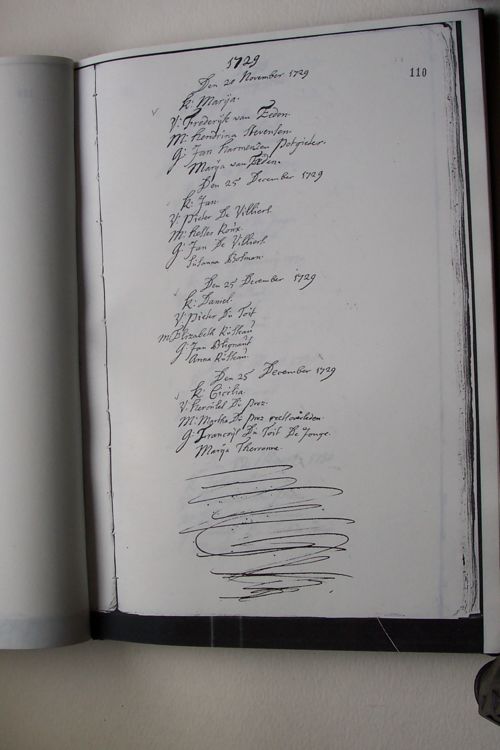 1729
110
Den 20 November 1729
K: Marija.
V: Frederijk van Eeden.
M: Hendrina Stevensen.
G: Jan Harmensen Potgieter.
Marija van Eeden.
Den 25 December 1729
K: Jan.
V: Pieter De Villiers.
M: Hester Roux.
G: Jan De Villiers.
Susanna
Den 25 December 1729
K: Daniel.
V: Pieter Du Toit
M: Elizabeth Rousseau
G: Jan
Anna
Den 25 December 1729
K: Cicilia
V: Hercules Du Prez.
M: Martha Du Prez
G: Francois Du Toit De Jonge.
Marija Therronne.